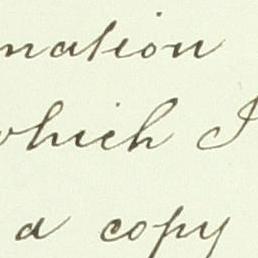 mation
which I
a copy